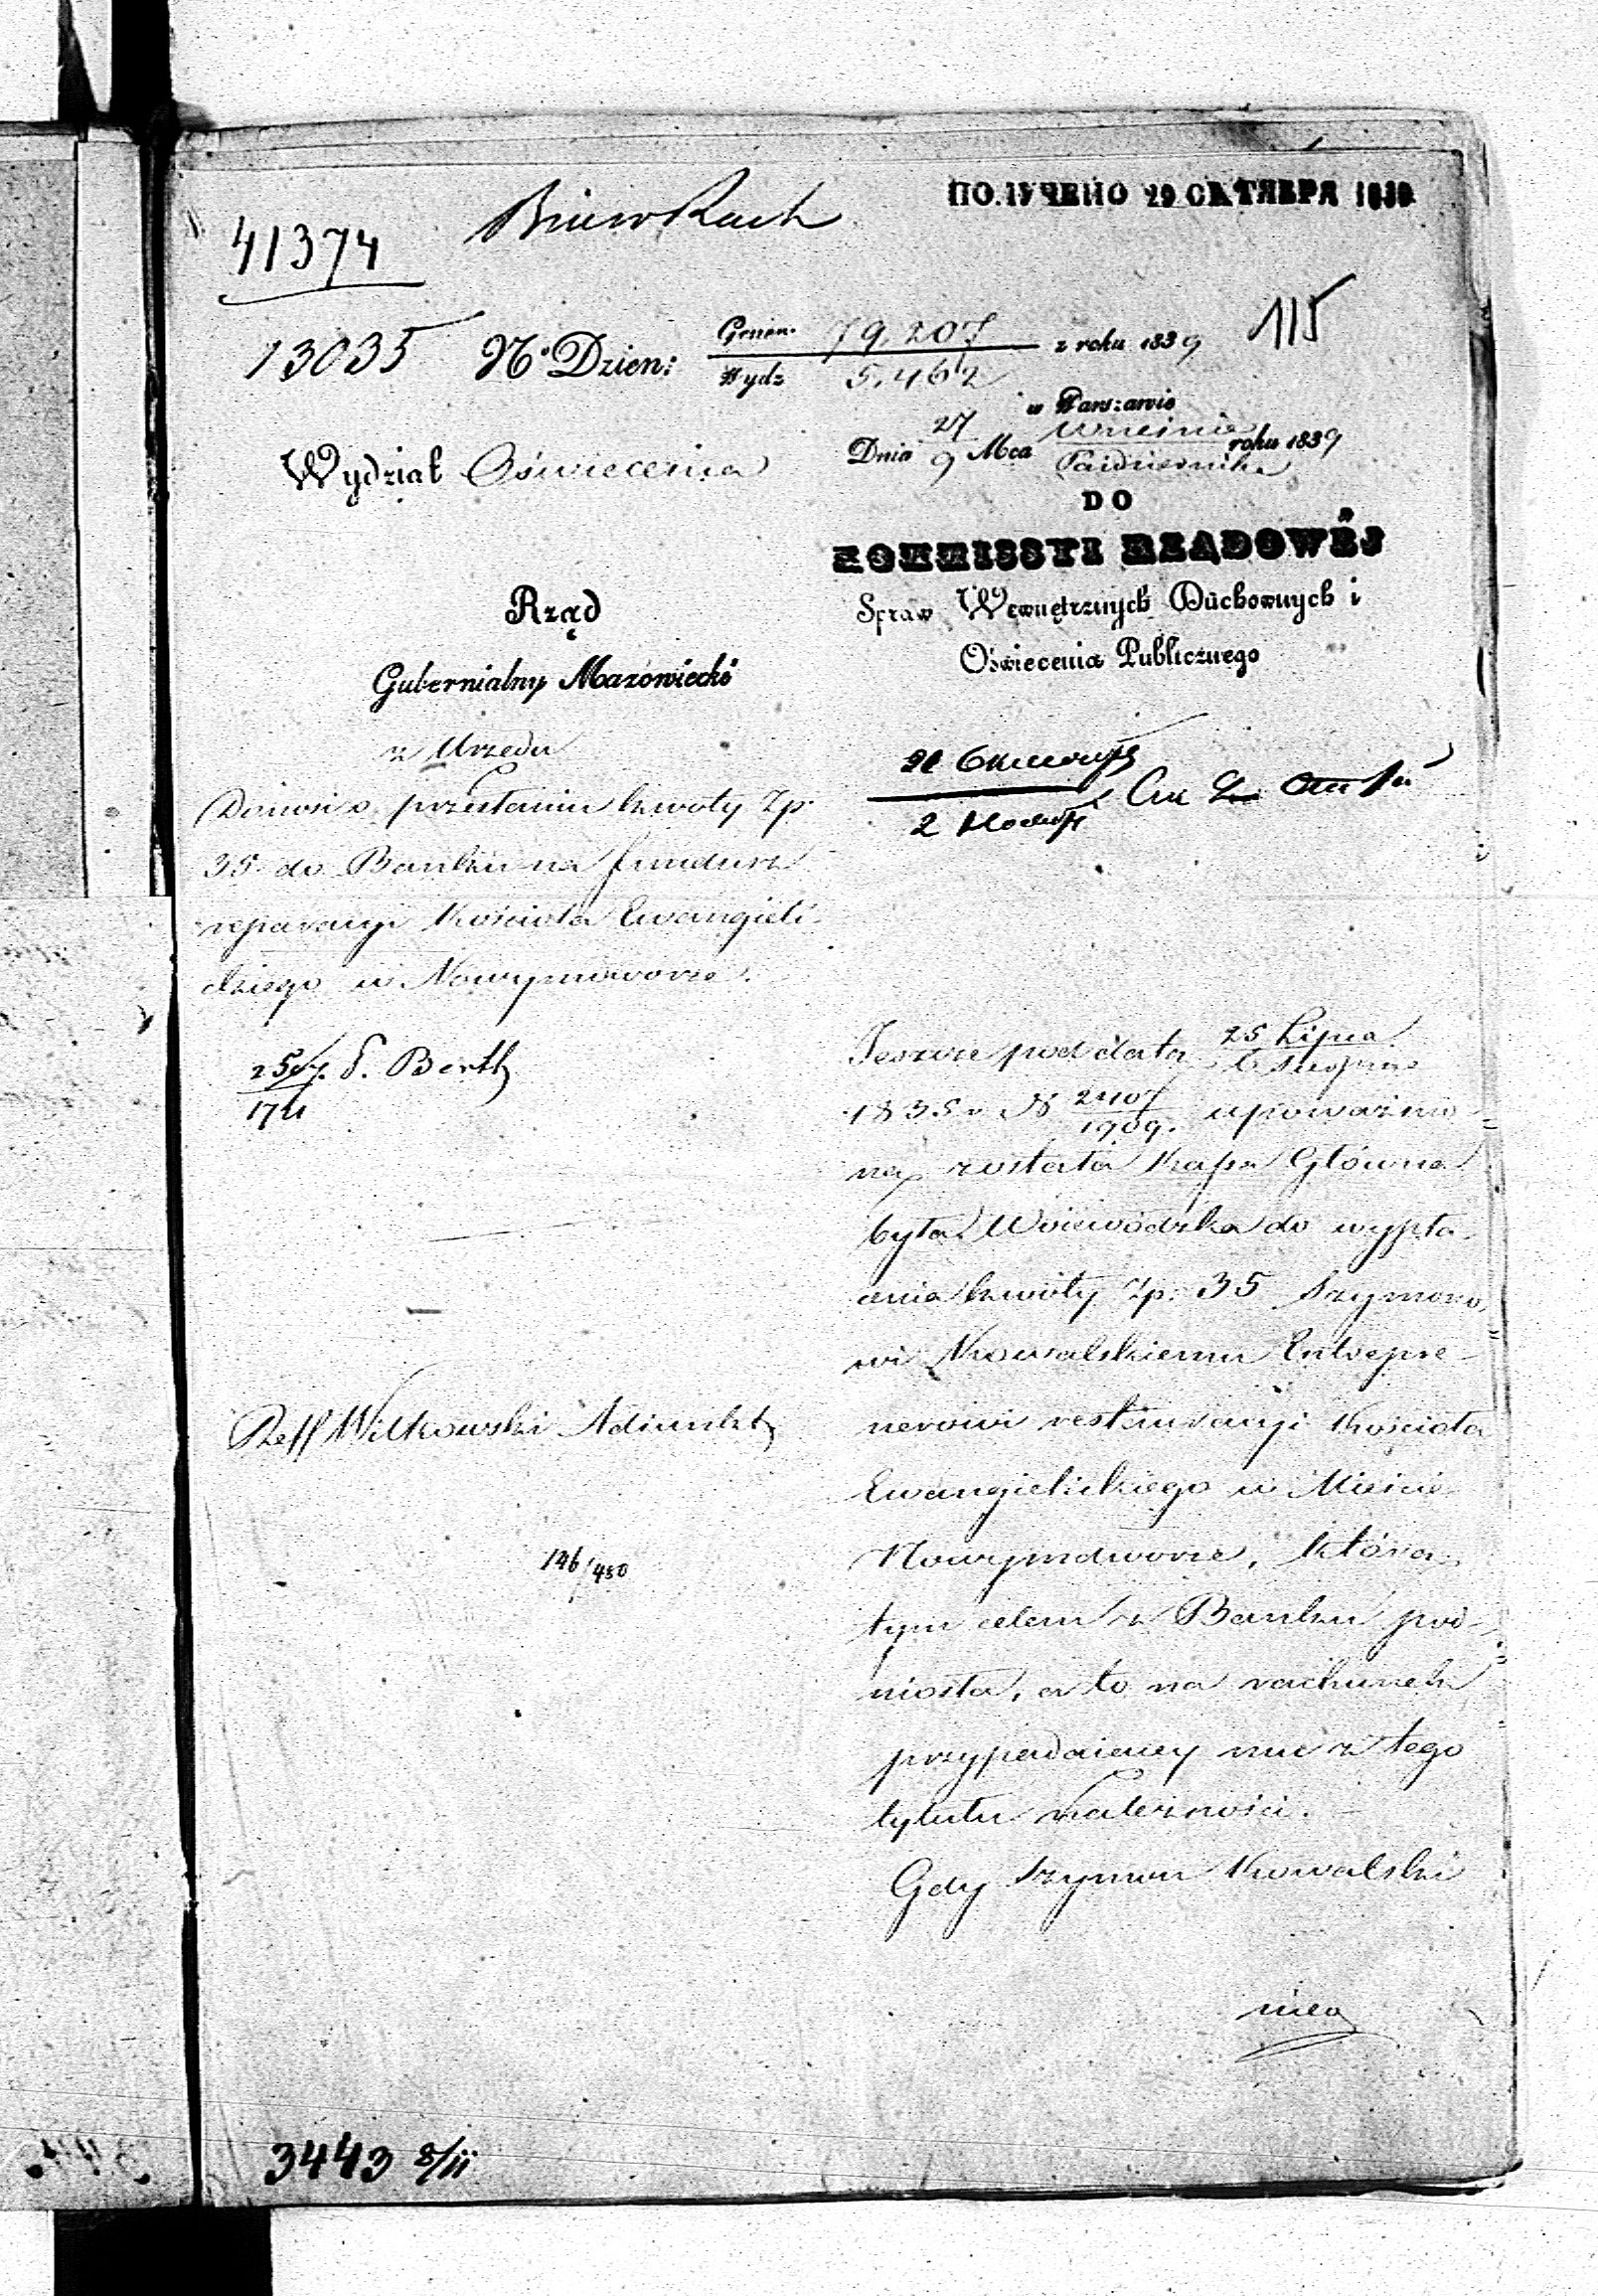 ПОЛУЧЕНО 29 ОКТЯБРЯ 1839
41374
115
13035 No. Dzien: Gener. 79,207 z roku 1839
Wydz 5.462
w Warszawie
Dnia 27 Września
9 Mca Października roku 1839
Wydział Oświecenia
DO
KOMMISSYI RZĄDOWÉJ
Spraw Wewnętrznych Duchownych i
Oświecenia Publicznego
Rząd
Gubernialny Mazowiecki
z Urzędu
Donosi o przesłaniu kwoty Zp.
35 do Banku na fundusz
reparacyi Kościoła Ewangieli-
ckiego w Nowymdworze.
Berth
Reff Witkowski Adiunkt
146/480
Jeszcze pod datą 25 Lipca
6 Sierpnia
1835 r. N 2407
1909. upoważnio-
ną została Kassa Główna
była Woiewódzka do wypła-
cenia kwoty Zp: 35 Szymono-
wi Kowalskiemu Entrepre-
nerowi restauracyi Kościoła
Ewangielickiego w Mieście
Nowymdworze, którą
tym celem z Banku pod-
niosła, a to na rachunek
przypadaiącey mu z tego
tytułu należności.
Gdy Szymon Kowalski
nieo
3443 8/II